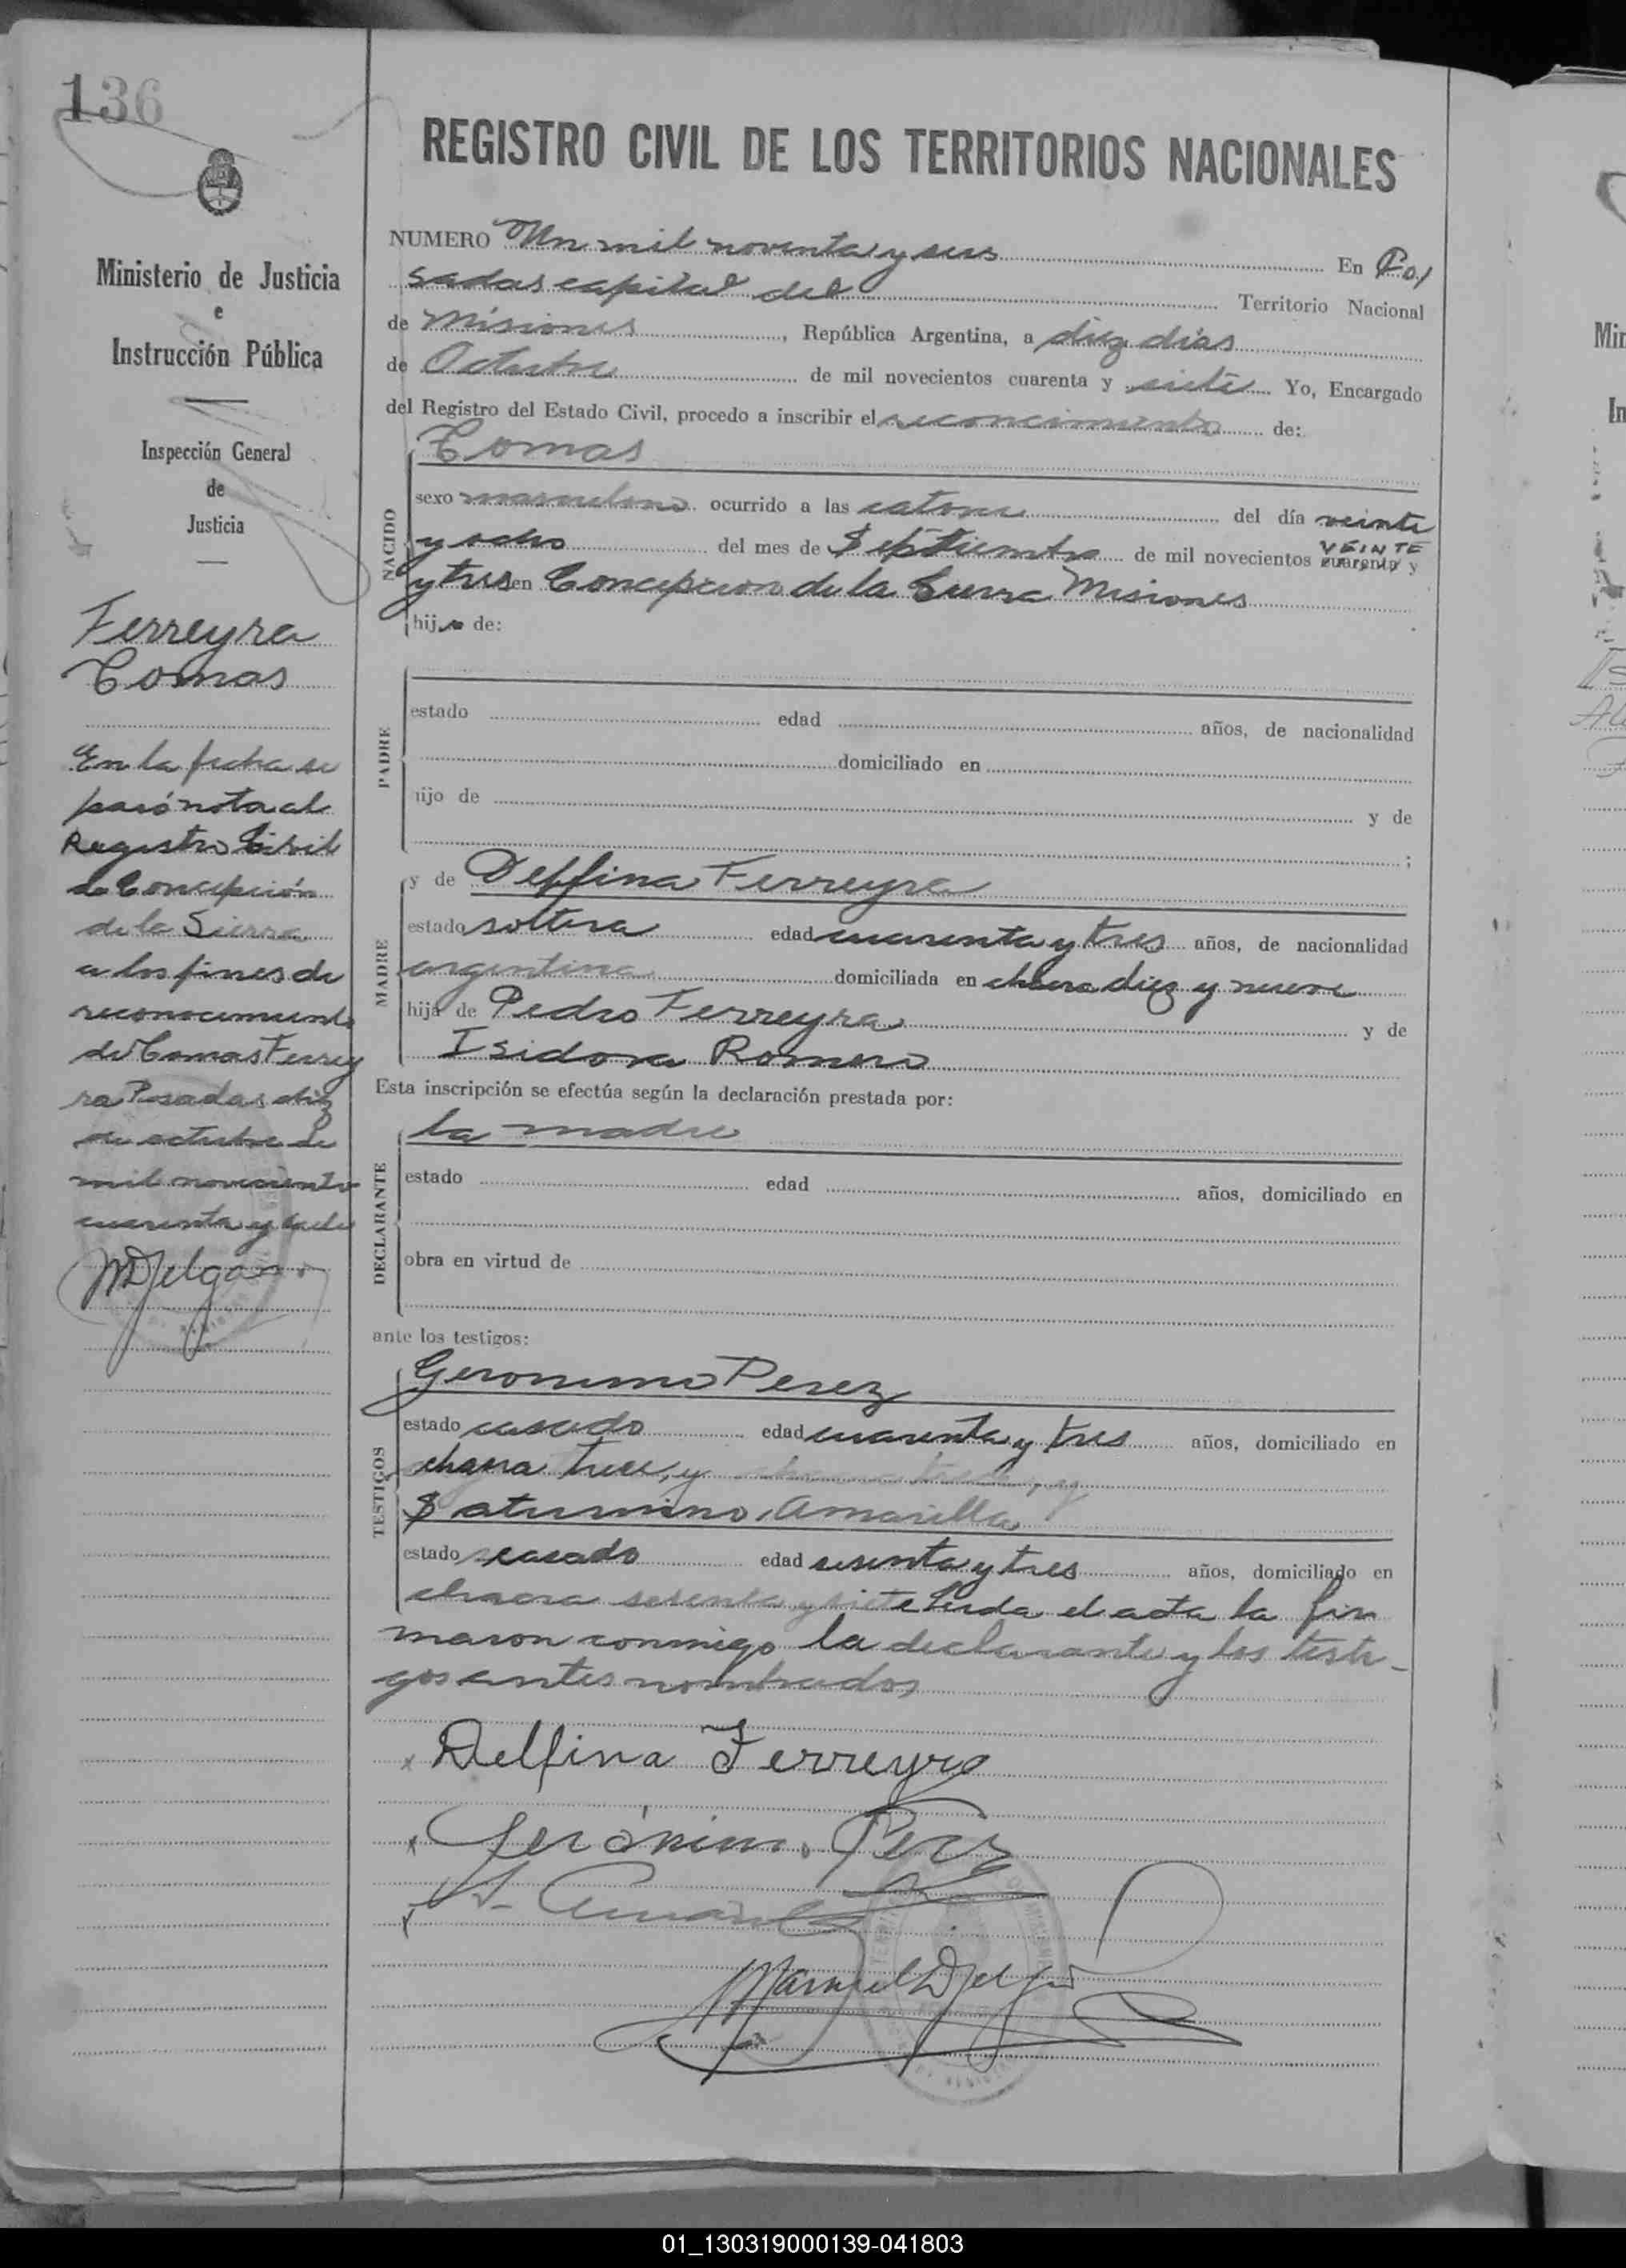 136
REGISTRO CIVIL DE LOS TERRITORIOS NACIONALES
Ministerio de Justicia
e
Instrucción Pública
Inspección General
de
Justicia
Ferreyra
Tomas
En la fecha se
pasó nota al
Registro Civil
de Concepción
de la Sierra
a los fines de
reconocimiento
de Tomas Ferrey
ra Posadas diez
de octubre de
mil novecientos
cuarenta y siete
MDelgado
NUMERO Un mil noventa y seis En Po
sadas capital del Territorio Nacional
de Misiones, República Argentina, a diez días
de Octubre de mil novecientos cuarenta y siete Yo, Encargado
del Registro del Estado Civil, procedo a inscribir el reconocimiento de:
NACIDO
Tomas
sexo masculino ocurrido a las catorce del día veinte
y ocho del mes de Septiembre de mil novecientos VEINTE cuarenta y
y tres en Concepcion de la Sierra Misiones
hijo de:
PADRE
estado edad años, de nacionalidad
domiciliado en
hijo de y de
;
MADRE
y de Delfina Ferreyra
estado soltera edad cuarenta y tres años, de nacionalidad
argentina domiciliada en chacra diez y nueve
hija de Pedro Ferreyra y de
Isidora Romero
Esta inscripción se efectúa según la declaración prestada por:
DECLARANTE
la madre
estado edad años, domiciliado en
obra en virtud de
ante los testigos:
TESTIGOS
Geronimo Perez
estado casado edad cuarenta y tres años, domiciliado en
chacra trece, y
Saturnino Amarilla
estado casado edad sesenta y tres años, domiciliado en
chacra sesenta y siete Leida el acta la fir
maron conmigo la declarante y los testi-
gos antes nombrados
x Delfina Ferreyra
x Gerónimo Perez
x S. Amarilla
Manuel Delgado
01_130319000139-041803